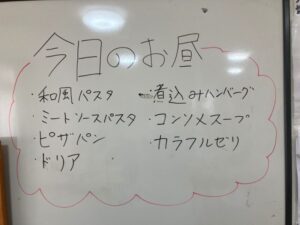 今日のお昼
・和風パスタ
・ミートソースパスタ
・ピザパン
・ドリア
・煮込みハンバーグ
・コンソメスープ
・カラフルゼリ